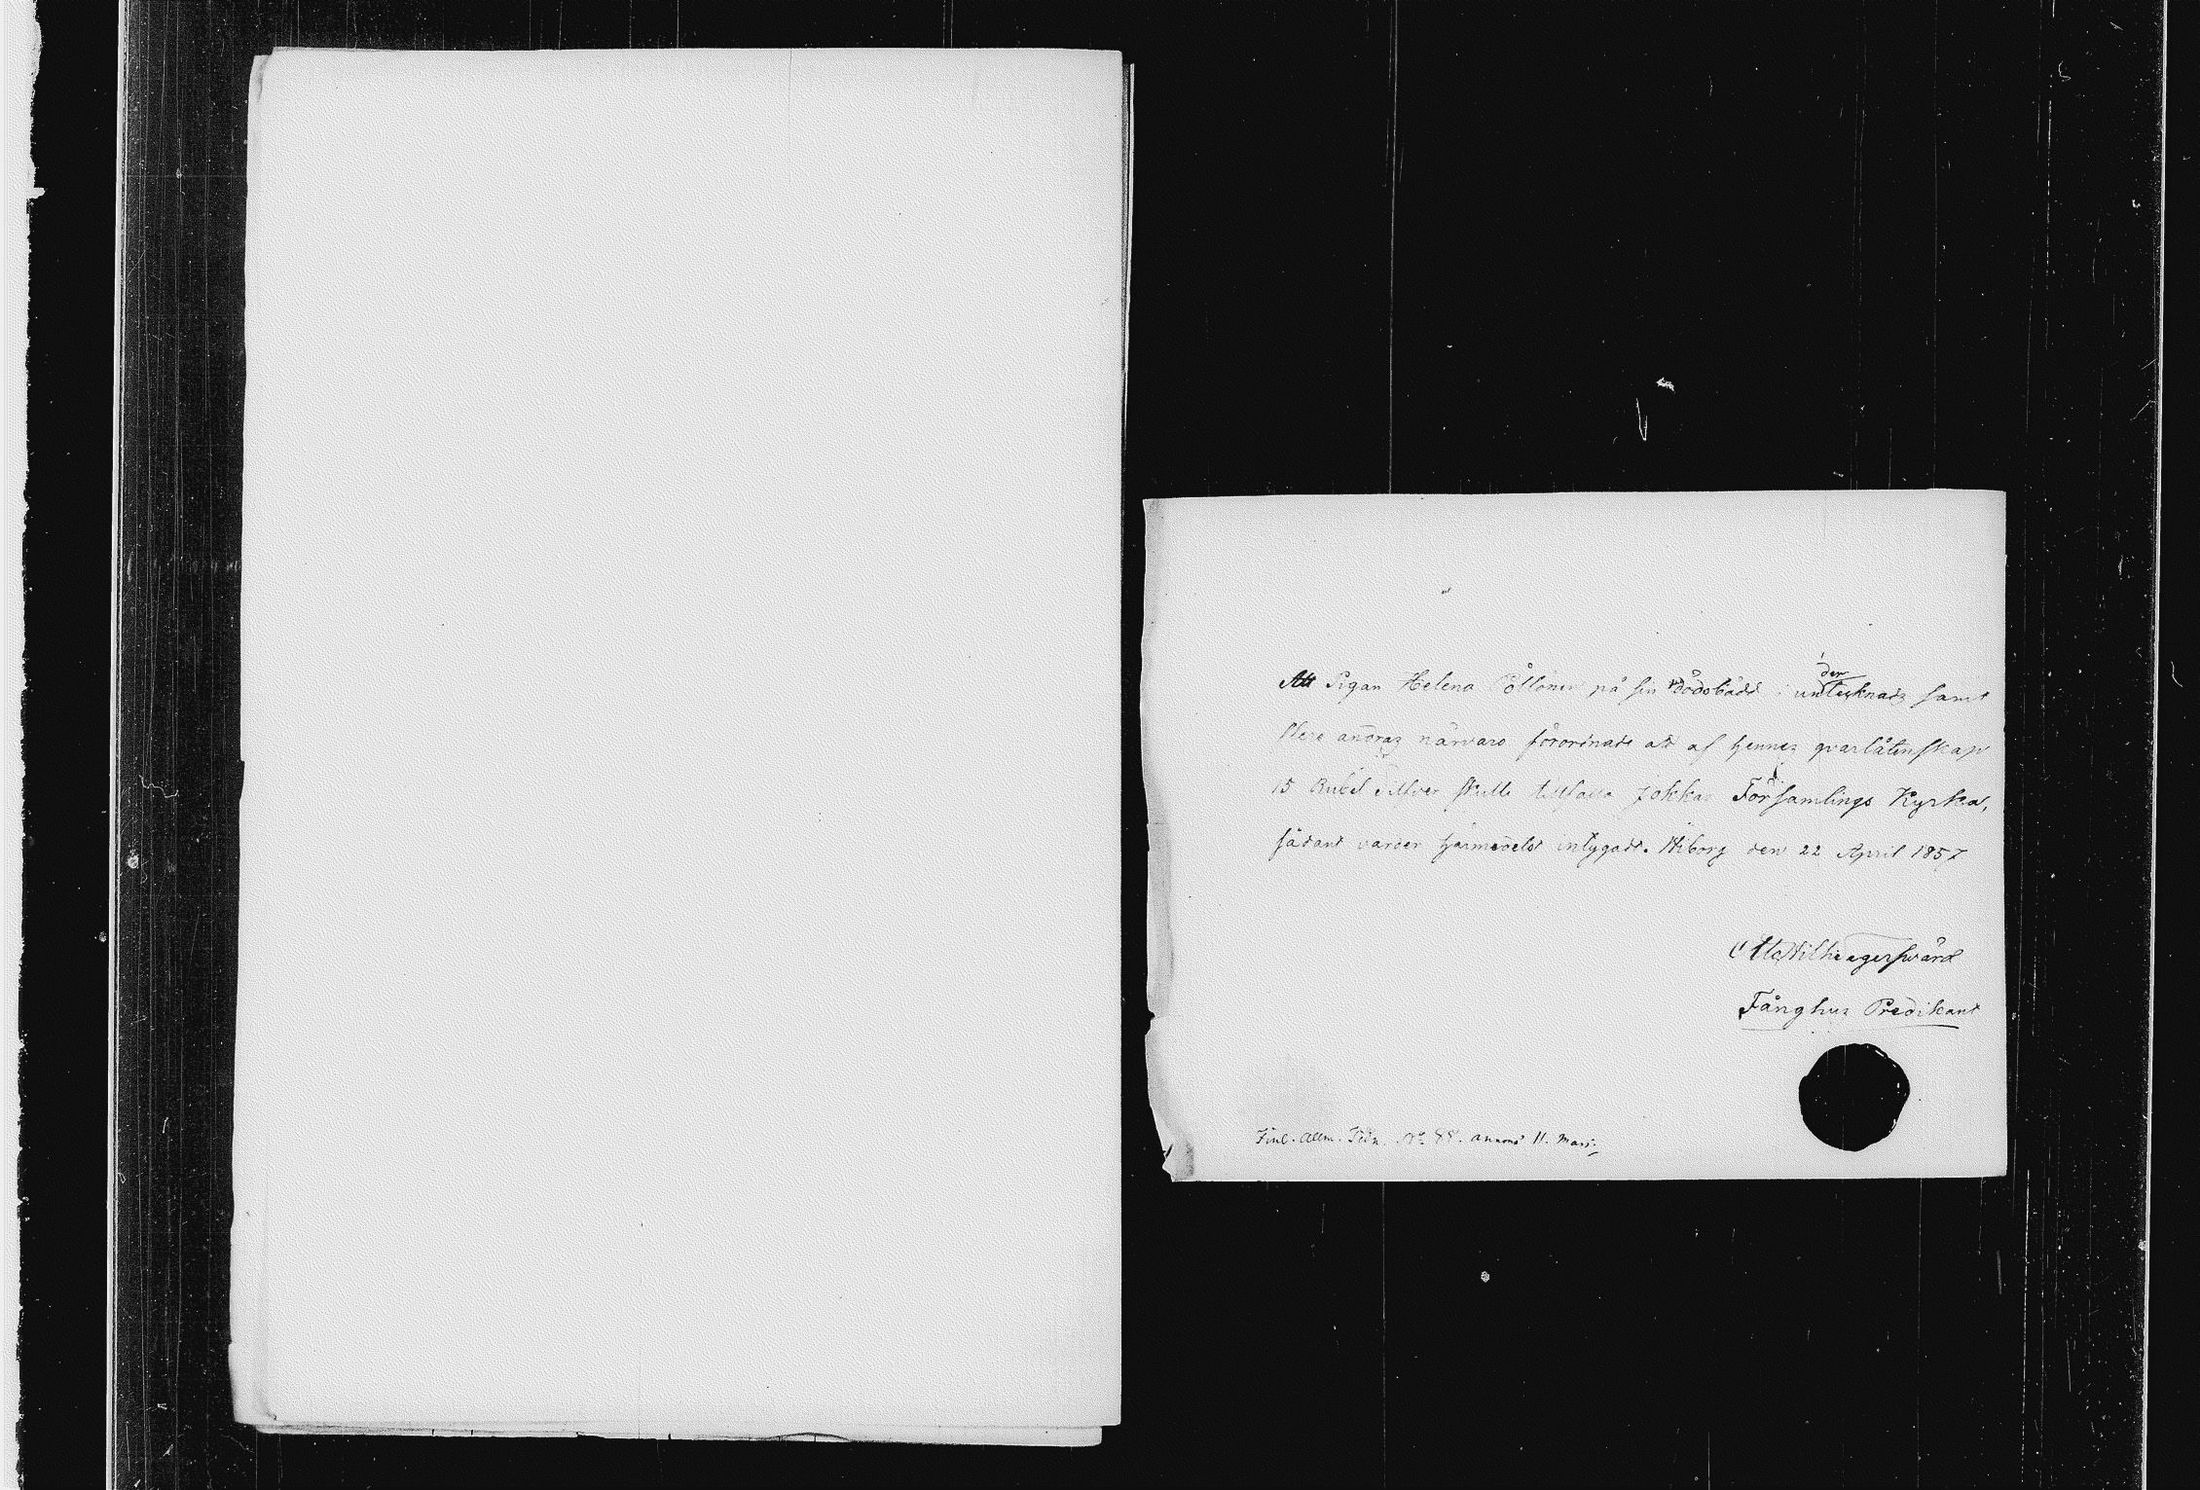 Att Pigan Helena Pöllönen på sin dödsbädd i undertecknads samt
flere andras närvaro förordnade att af hennes qvarlåtenskap
15 Rubel Silfver skulle tillfalla Jokkas Församlings Kyrka,
sådant varder härmedelst intygadt. Wiborg den 22 April 1857
Otto Wilh: Lagersvärd
Fånghus Predikant
Finl. Allm. Tidn. No 58. annons 11. Mars.